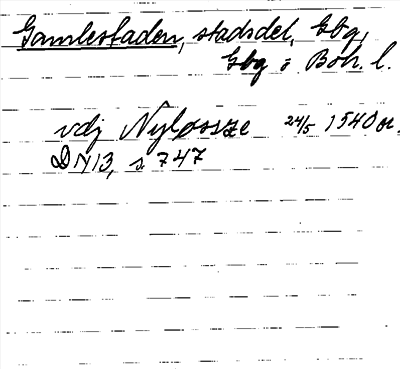 Gamlestaden, stadsdel, Gbg,
Gbg o Boh. l.
vdj Nylossze 24/5 1540 or.
DN 13, s 747